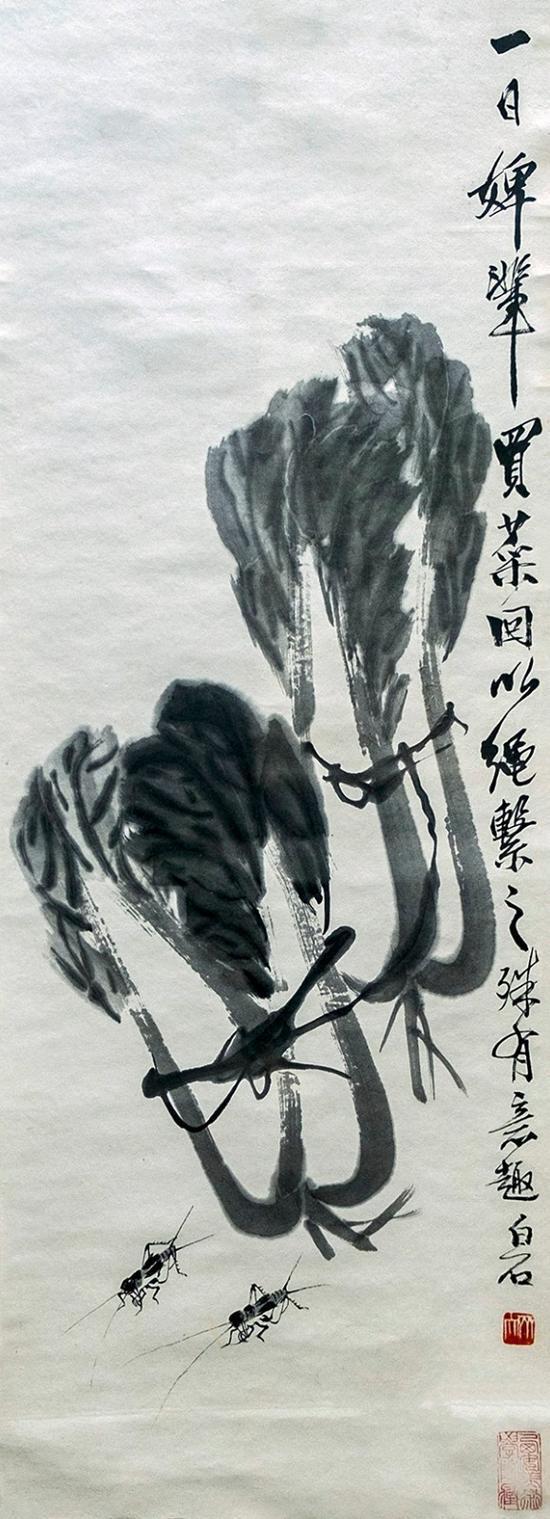 一日婢輩買菜回以繩繫之殊有意趣白石